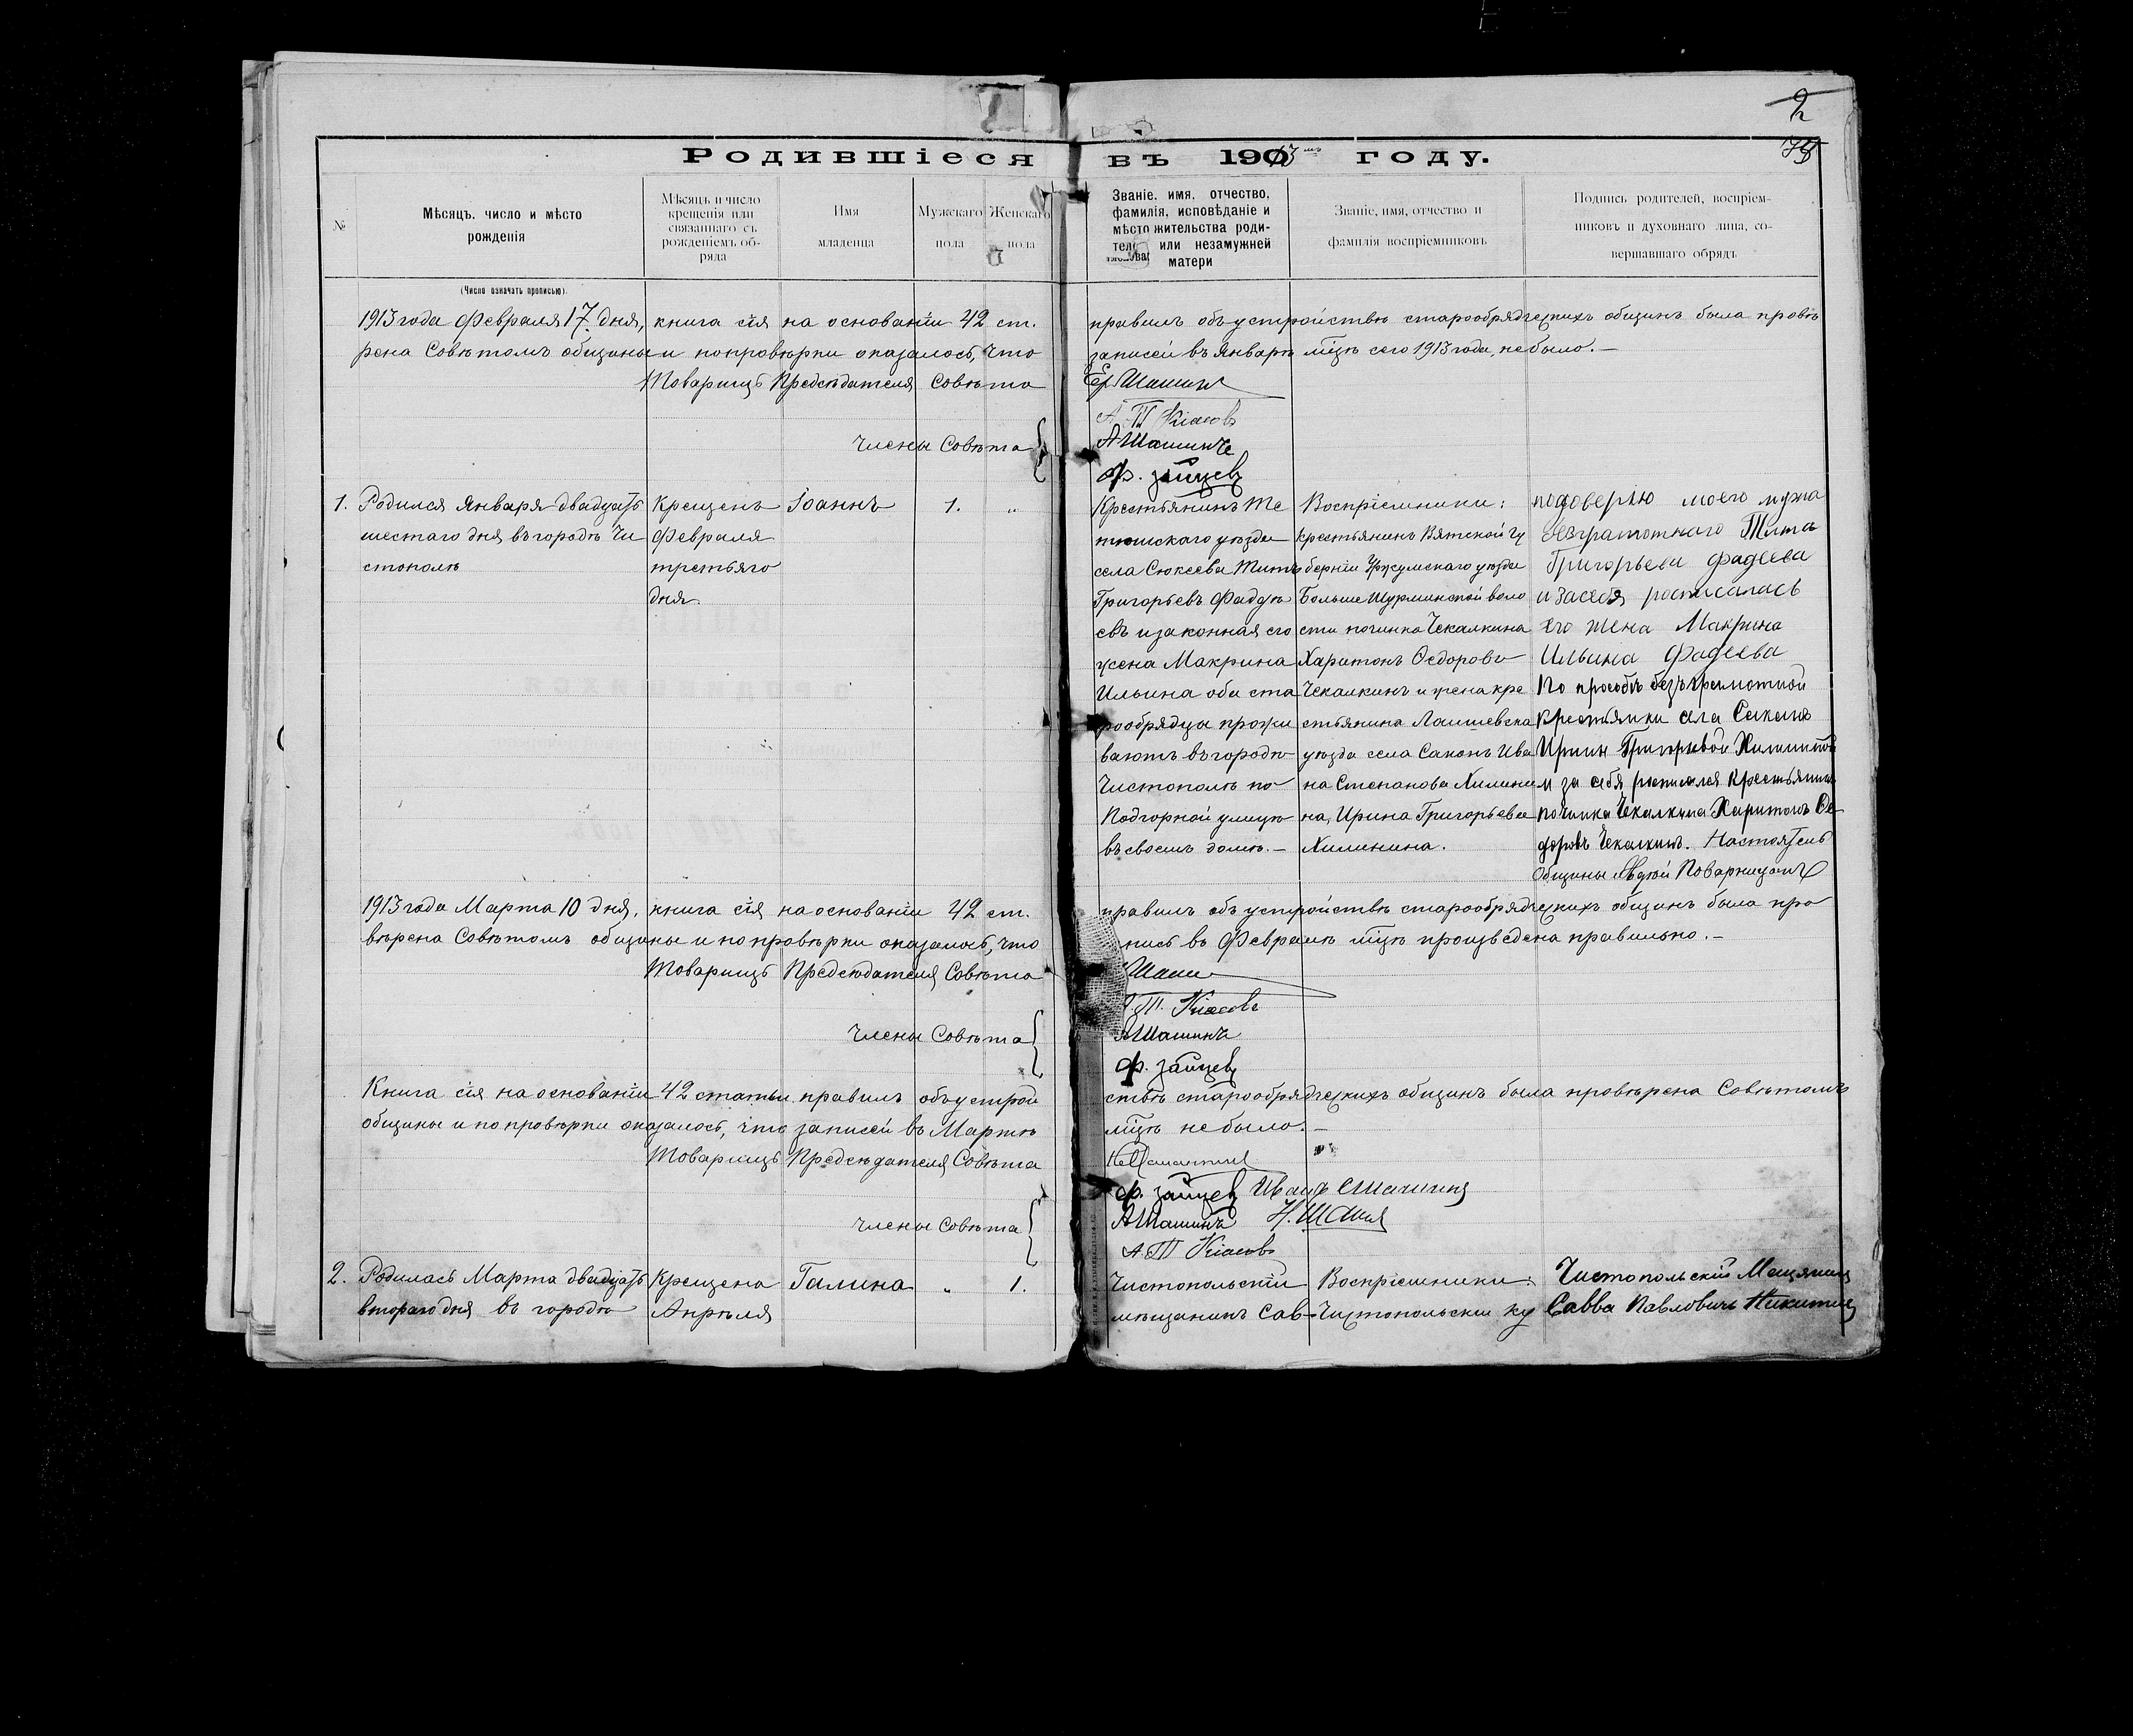 2
Родившіеся въ 1913 мъ году.
№
Мѣсяцъ, число и мѣсто
рожденія
Мѣсяцъ и число
крещенія или
связаннаго съ
рожденіемъ об-
ряда
Имя
младенца
Мужскаго
пола
Женскаго
пола
Званіе, имя, отчество,
фамилія, исповѣданіе и
мѣсто жительства роди-
теле или незамужней
матери
Званіе, имя, отчество и
фамилія воспріемниковъ
Подпись родителей, воспріем-
никовъ и духовнаго лица, со-
вершавшаго обрядъ
(Число означать прописью).
1913 года Февраля 17 дня, книга сія на основаніи 42 ст. правилъ объ устройствѣ старообрядческихъ общинъ была провѣ
рена Совѣтомъ общины и по провѣрки оказалось, что записей въ Январѣ мцѣ сего 1913 года, не было. —
Товарищъ Предсѣдателя Совѣта
А Т Кіасовъ
Члены Совѣта
А Шашинъ
Ф. Зайцевъ
1.
Родился Января двадцать
шестаго дня въ городѣ Чи
стополѣ
Крещенъ
Февраля
третьяго
дня.
Іоаннъ
1.
„
Крестьянинъ Те
тюшскаго уѣзда
села Сюкеева Титъ
Григорьевъ Фадѣ
евъ и законная его
жена Макрина
Ильина оба ста
рообрядцы прожи
ваютъ въ городѣ
Чистополѣ по
Подгорной улицѣ
въ своемъ домѣ. —
Воспріемники:
крестьянинъ Вятской гу
берніи Уржумскаго уѣзда
Больше Шурминской воло
сти починка Чекалкина
Харитонъ Ѳедоровъ
Чекалкинъ и жена кре
стьянина Лаишевска
уѣзда села Саконъ Ива
на Степанова Хилини
на, Ирина Григорьева
Хилинина.
подоверію моего мужа
безграмотнаго Тита
Григорьева Фадеева
и засебя росписалась
его жена Макрина
Ильина Фадеева
По просьбѣ безъграмотной
крестьянки села Саконъ
Ирины Григорьевой Хилининой
и за себя росписался крестьянинъ
починка Чекалкина Харитонъ Ѳе-
доровъ Чекалкинъ. Настоятель
Общины Авдей Поварницынъ
1913 года Марта 10 дня, книга сія на основаніи 42 ст. правилъ объ устройствѣ старообрядческихъ общинъ была про
вѣрена Совѣтомъ общины и по провѣрки оказалось, что пись въ Февралѣ мцѣ произведена правильно. —
Товарищъ Предсѣдателя Совѣта
Т. Кіасовъ
Члены Совѣта
А Шашинъ
Ф. Зайцевъ
Книга сія на основаніи 42 статьи правилъ объ устрой ствѣ старообрядческихъ общинъ была провѣрена Совѣтомъ
общины и по провѣрки оказалось, что записей въ Мартѣ мцѣ не было. —
Товарищъ Предсѣдателя Совѣта
Ф. Зайцевъ Иванъ Шашинъ
Члены Совѣта
А Шашинъ Н. Шашин
А Т Кіасовъ
2.
Родилась Марта двадцать
втораго дня въ городѣ
Крещена
Апрѣля
Галина
„
1.
Чистопольскій
мѣщанинъ Сав-
Воспріемники:
Чистопольскіи ку
Чистопольскій Мещянинъ
Савва Павловичь Никитинъ